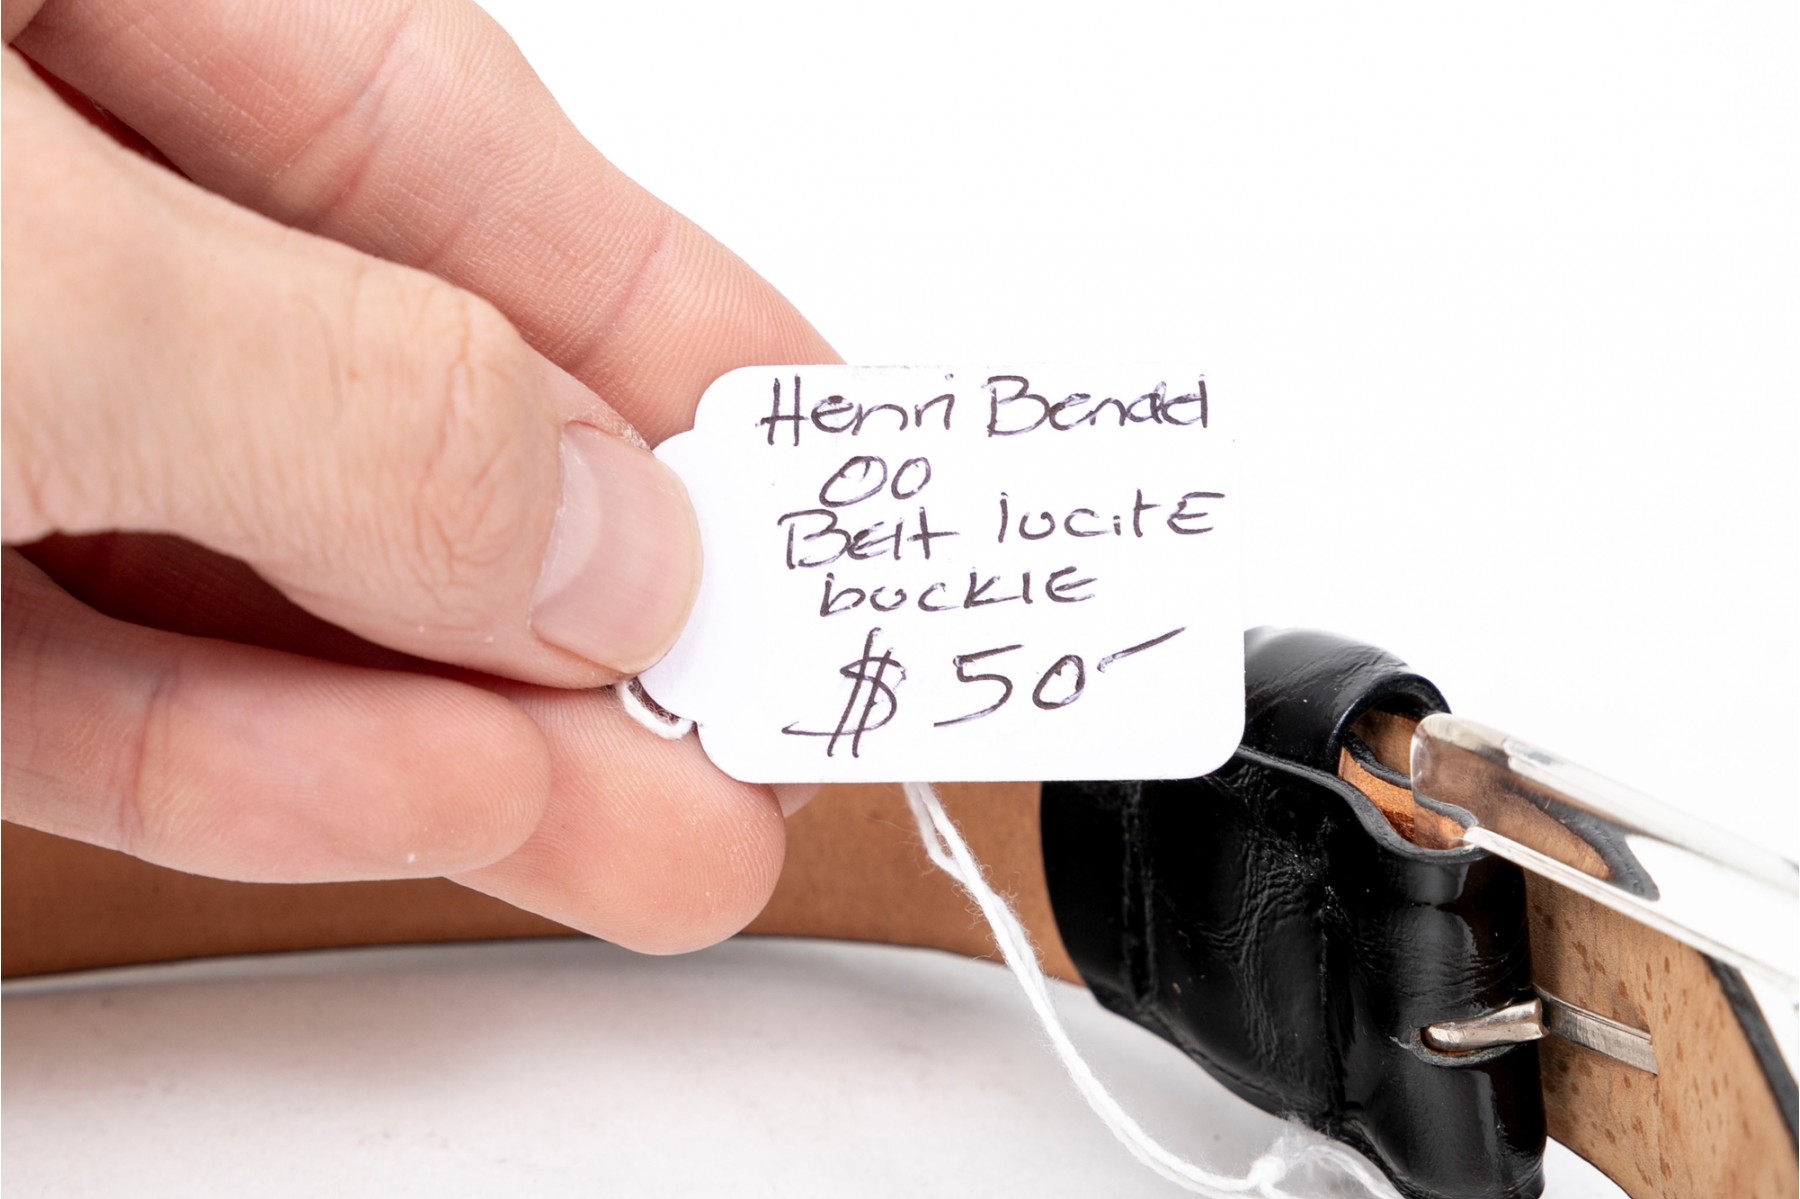 Henri Bendel
00
Belt lucitE
buckle
$50-